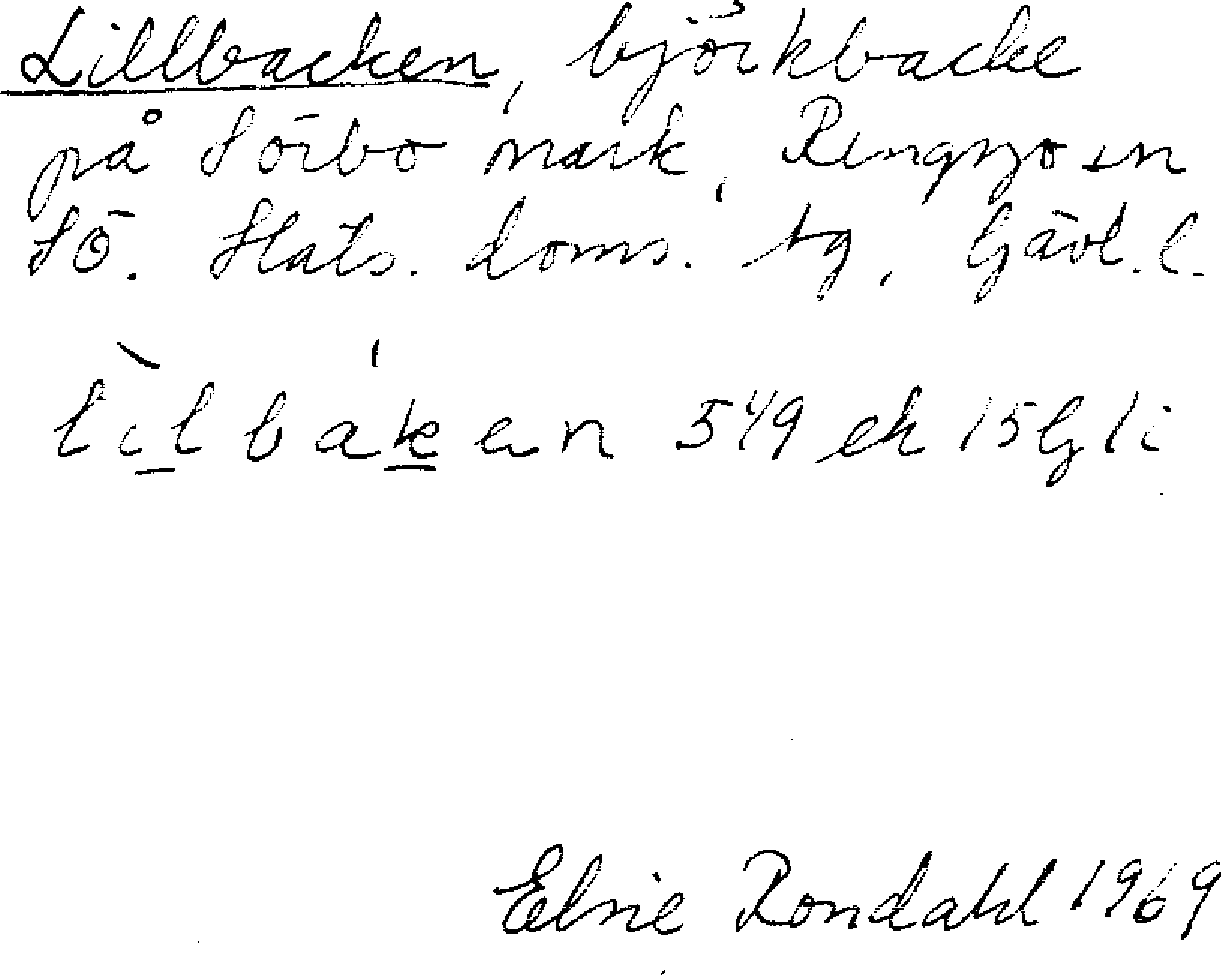 Lillbacken, björkbacke
på Sörbo mark, Rengsjo sn
SÖ. Häls. doms. tg, Gävl.l.
lìlbák en 5⁴/9 ek 15
Elsie Rondahl 1969